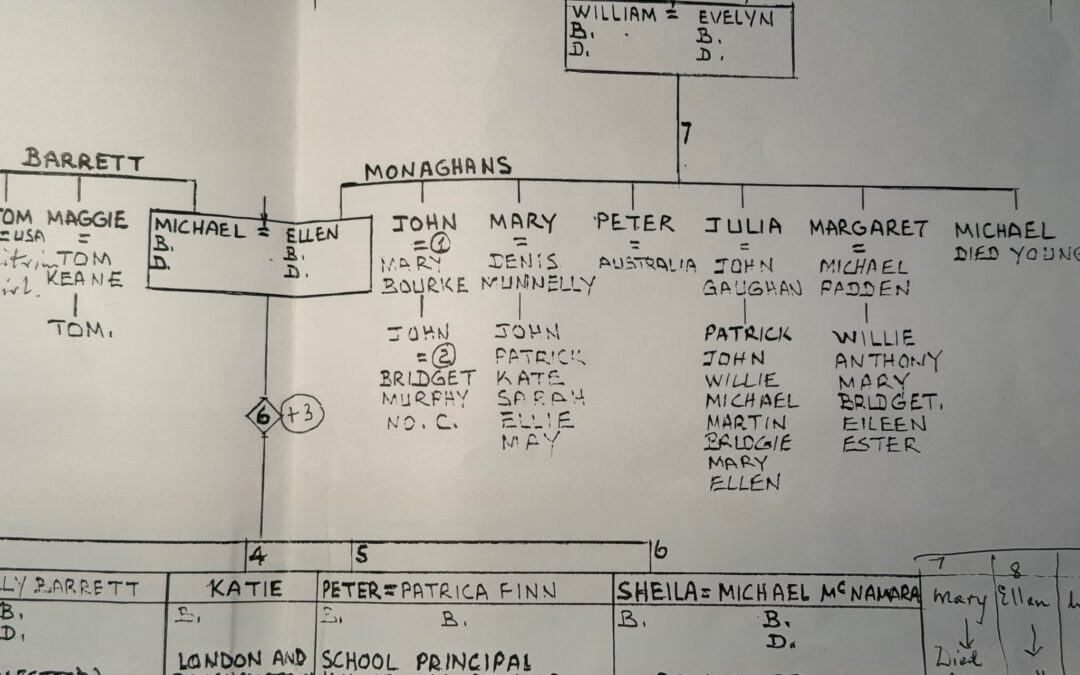 WILLIAM = EVELYN
B. B.
D. D.
7
BARRETT
MONAGHANS
TOM
= USA
girl.
MAGGIE
=
TOM
KEANE
TOM.
MICHAEL = ELLEN
B. B.
D. D.
JOHN
= 1
MARY
BOURKE
JOHN
= 2
BRIDGET
MURPHY
NO. C.
MARY
=
DENIS
MUNNELLY
JOHN
PATRICK
KATE
SARAH
ELLIE
MAY
PETER
=
AUSTRALIA
JULIA
=
JOHN
GAUGHAN
PATRICK
JOHN
WILLIE
MICHAEL
MARTIN
BRIDGIE
MARY
ELLEN
MARGARET
=
MICHAEL
PADDEN
WILLIE
ANTHONY
MARY
BRIDGET.
EILEEN
ESTER
MICHAEL
DIED YOUNG
6 +3
4 5 6 7 8
LLY BARRETT
B.
D.
KATIE
B.
LONDON AND
PETER = PATRICA FINN
B. B.
SCHOOL PRINCIPAL
SHEILA = MICHAEL McNAMARA
B. B.
D.
Mary
Died
Ellen